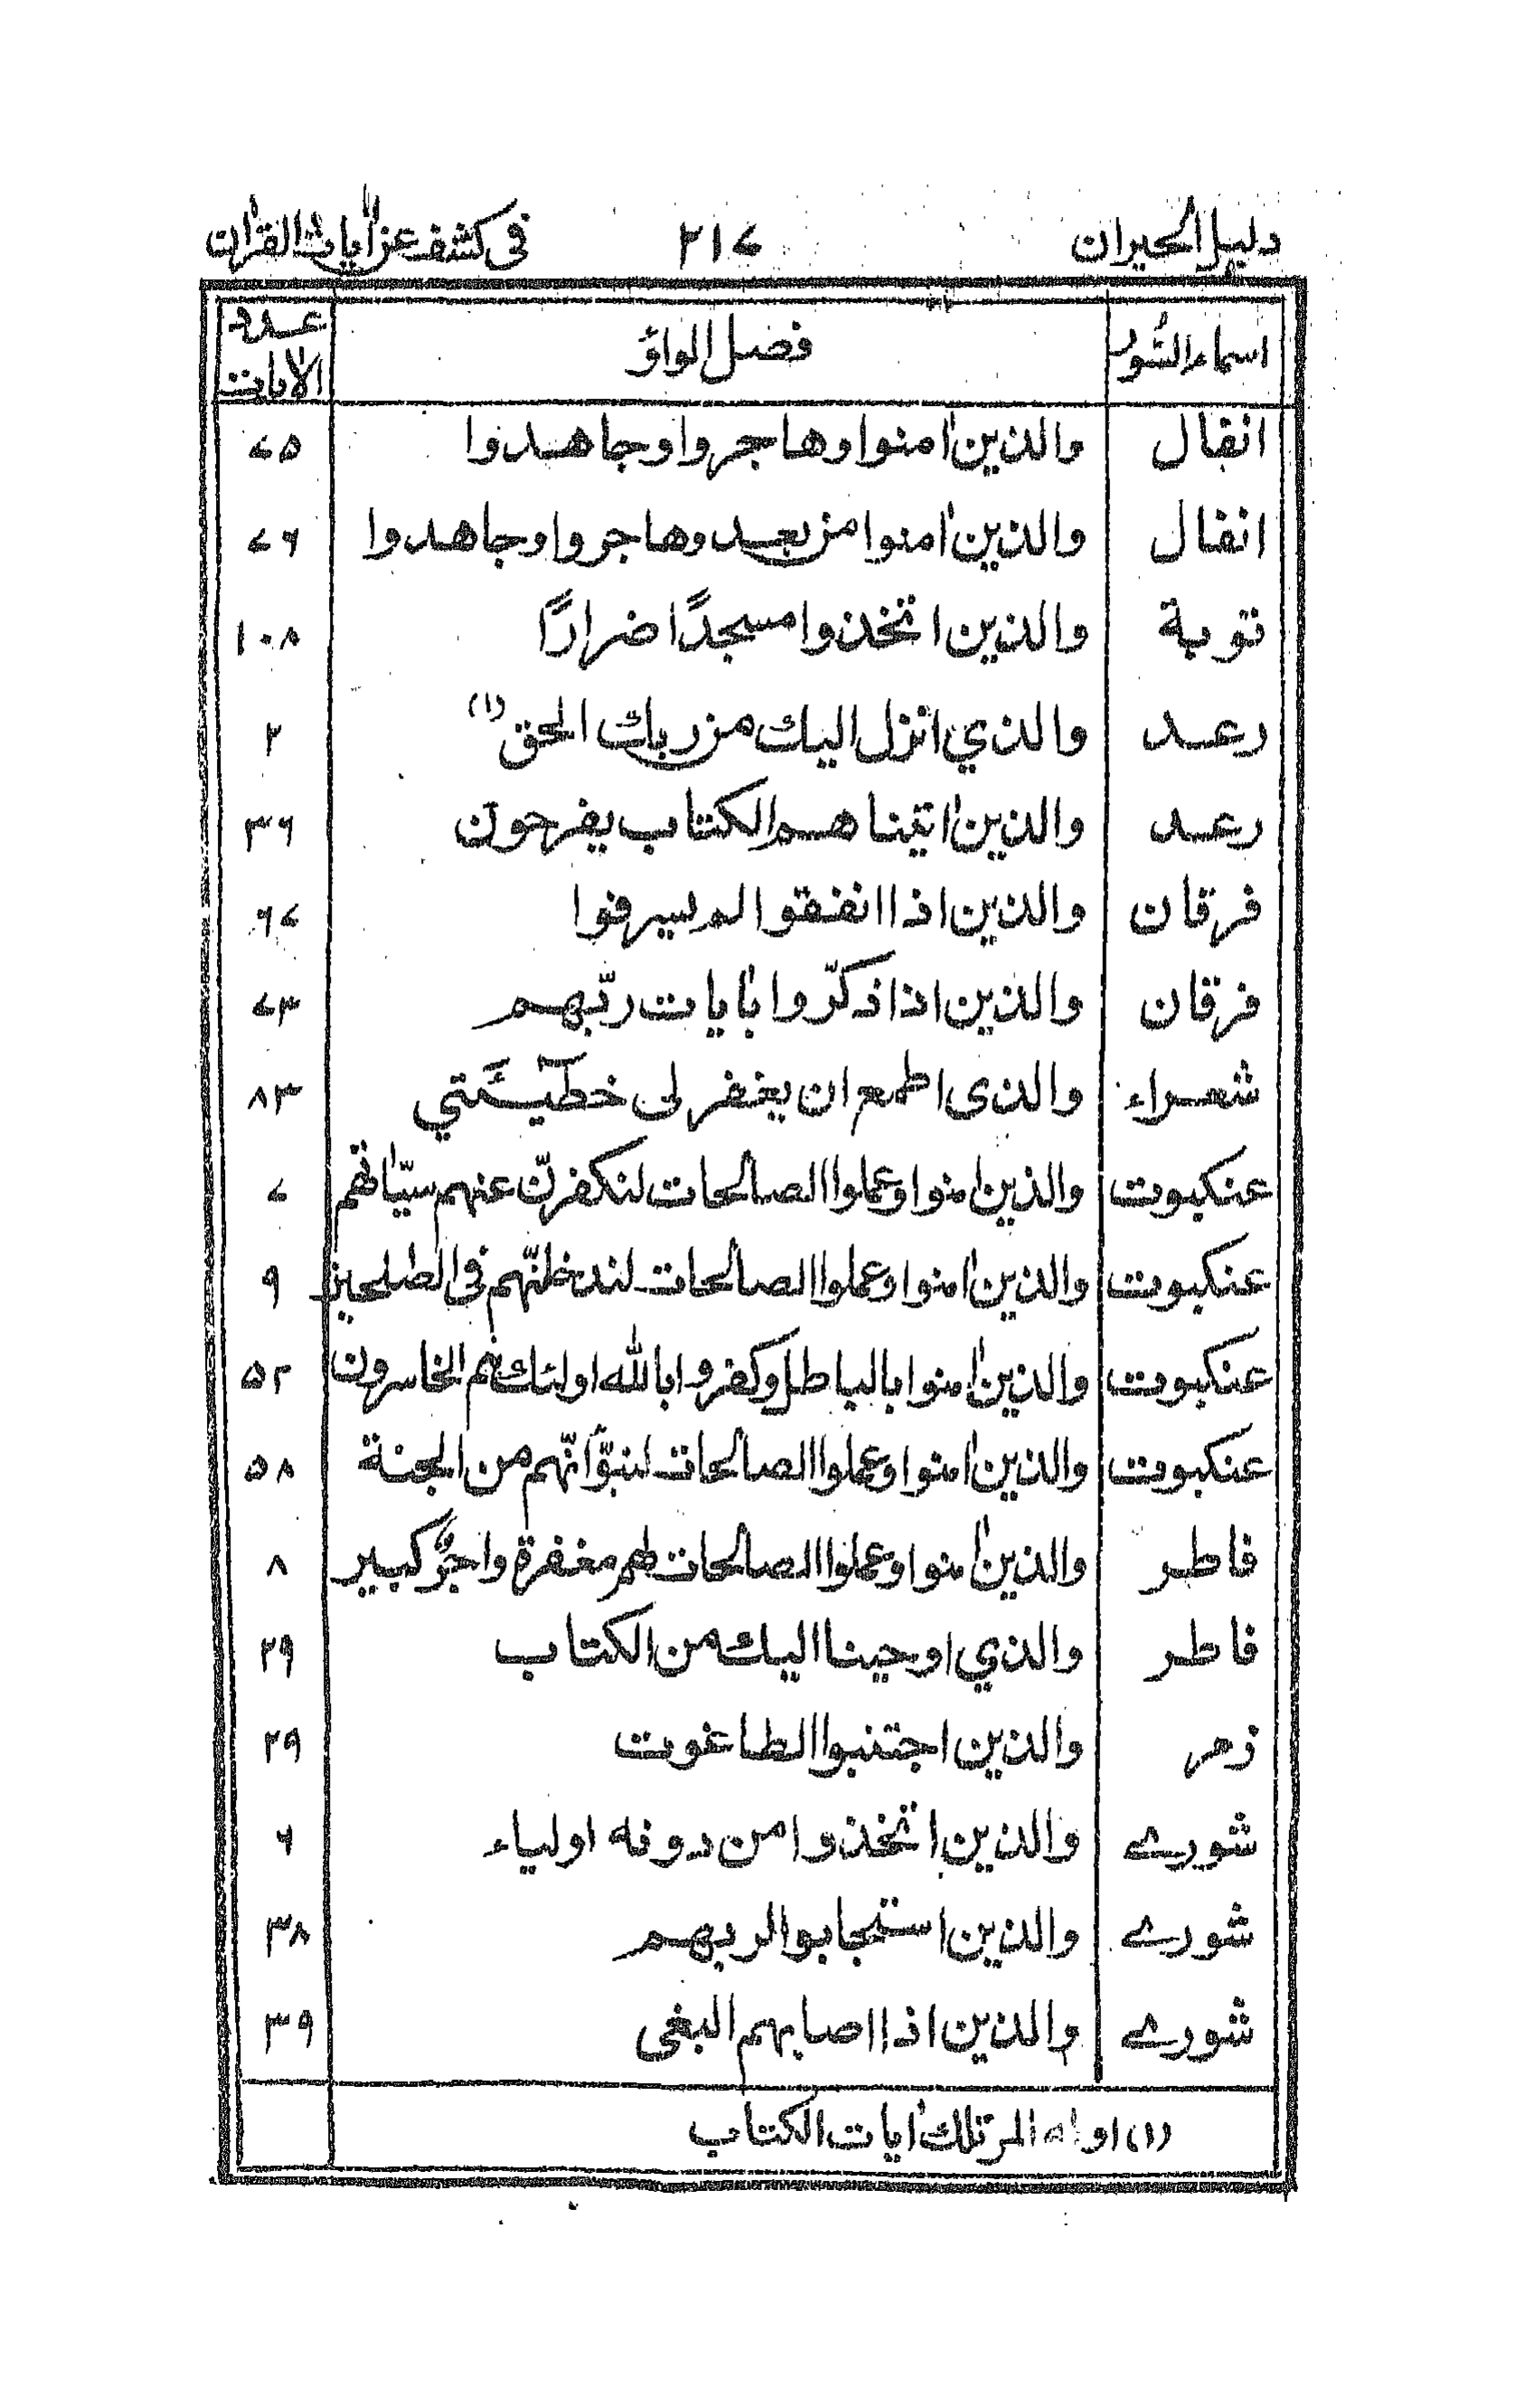 دليل الحيران ٢١٧ في كشف عن اٰيات القراٰن
اسماء السُّور فصل الواؤ عدد الاٰيات
انفال والذين اٰمنوا وهاجروا وجاهدوا ٧٥
انفال والذين اٰمنوا من بعد وهاجروا وجاهدوا ٧٦
توبة والذين اتخذوا مسجدًا ضرارًا ١٠٨
رعد والذي انزل اليك من ربك الحق (١) ٢
رعد والذين اٰتيناهم الكتاب يفرحون ٣٦
فرقان والذين اذا انفقوا لم يسرفوا ٦٧
فرقان والذين اذا ذكّروا باٰيات ربّهم ٧٣
شعراء والذى اطمع ان يغفر لى خطيٓئَتي ٨٣
عنكبوت والذين اٰمنوا وعملوا الصالحات لنكفرنّ عنهم سيّاٰتهم ٧
عنكبوت والذين اٰمنوا وعملوا الصالحات لندخلنّهم في الصٰلحين ٩
عنكبوت والذين اٰمنوا بالباطل وكفروا بالله اولئك هم الخاسرون ٥٢
عنكبوت والذين اٰمنوا وعملوا الصالحات لنبوّأنّهم من الجنة ٥٨
فاطر والذين اٰمنوا وعملوا الصالحات لهم مغفرة واجرٌ كبير ٨
فاطر والذي اوحينا اليك من الكتاب ٢٩
زمر والذين اجتنبوا الطاغوت ٢٩
شورے والذين اتخذوا من دونه اولياء ٦
شورے والذين استجابوا لربهم ٣٨
شورے والذين اذا اصابهم البغى ٣٩
(١) اوله المر تلك اٰيات الكتاب